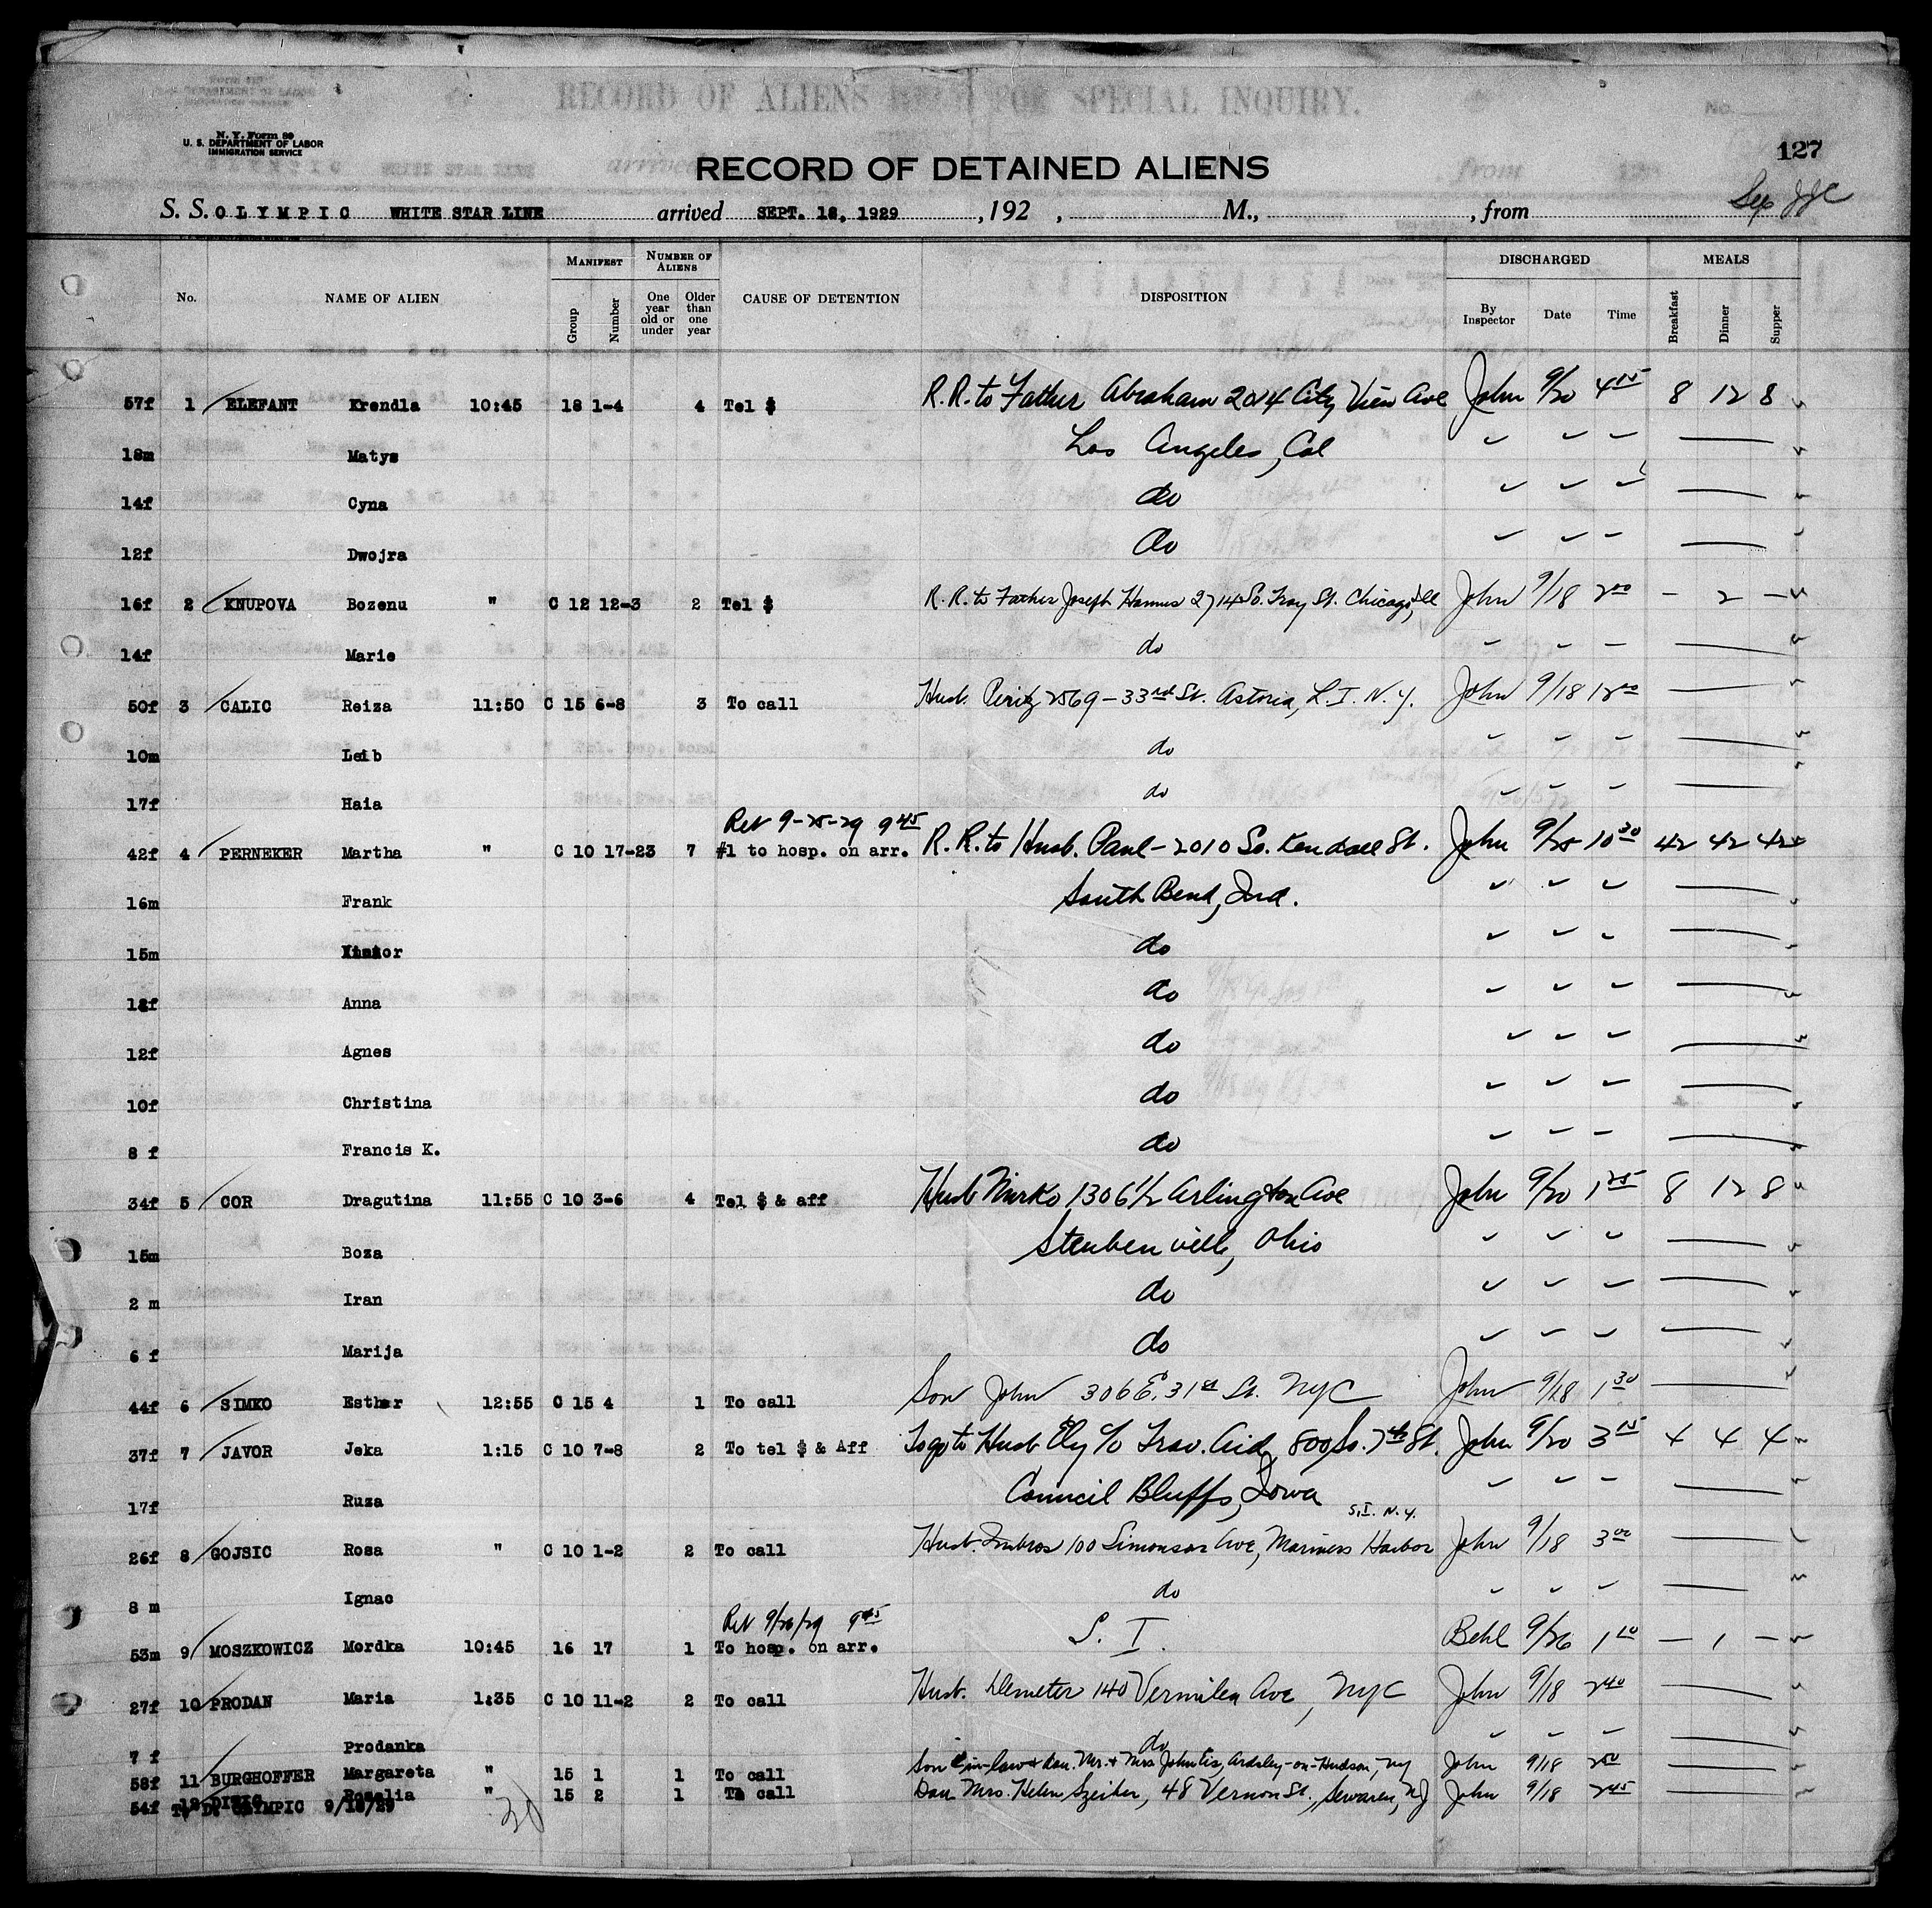 RECORD OF ALIENS HELD FOR SPECIAL INQUIRY.
N. Y. Form 89
U. S. DEPARTMENT OF LABOR
IMMIGRATION SERVICE
127
RECORD OF DETAINED ALIENS
Sep
S. S. OLYMPIC WHITE STAR LINE arrived SEPT. 18, 1929, 192 , M., , from
No. NAME OF ALIEN MANIFEST Group Number NUMBER OF ALIENS One year old or under Older than one year CAUSE OF DETENTION DISPOSITION DISCHARGED By Inspector Date Time MEALS Breakfast Dinner Supper
57f 1 ELEFANT Krendla 10:45 18 1-4 4 Tel $ R.R. to Father Abraham 2014 City View Ave John 9/20 4 15 8 12 8
18m Matys Los Angeles, Cal
14f Cyna do
12f Dwojra do
16f 2 KNUPOVA Bozenu " C 12 12-3 2 Tel $ R.R. to Father Joseph 2714 So. Troy St. Chicago, Ill John 9/18 2 00 - 2 -
14f Marie do
50f 3 CALIC Reiza 11:50 C 15 6-8 3 To call Husb. Peritz 2569-33rd St. Astoria, L.I. N.Y. John 9/18 12 00
10m Leib do
17f Haia do
Ret 9-25-29 9 45
42f 4 PERNEKER Martha " C 10 17-23 7 #1 to hosp. on arr. R.R. to Husb. Paul - 2010 So. Kendall St. John 9/25 10 30 42 42 42
16m Frank South Bend, Ind.
15m do
Anna do
12f Agnes do
10f Christina do
8 f Francis K. do
34f 5 COR Dragutina 11:55 C 10 3-6 4 Tel $ & aff Husb Mirko 1306 1/2 Arlington Ave John 9/20 1 25 8 12 8
15m Boza Steubenville, Ohio
2 m Iran do
6 f Marija do
44f 6 SIMKO Esther 12:55 C 15 4 1 To call Son John 306 E. 31st St. NYC John 9/18 1 30
37f 7 JAVOR Jeka 1:15 C 10 7-8 2 To tel $ & Aff To go to Husb Ely c/o Trav. Aid, 800 So. 7th St. John 9/20 3 15 4 4 4
17f Ruza Council Bluffs, Iowa
S.I. N.Y.
26f 8 GOJSIC Rosa " C 10 1-2 2 To call Husb. Imbros 100 Simonson Ave, Mariners Harbor John 9/18 3 00
8 m Ignac do
Ret 9/26/29 9 45
53m 9 MOSZKOWICZ Mordka 10:45 16 17 1 To hosp. on arr. S. I. Behl 9/26 1 10 - 1 -
27f 10 PRODAN Maria 1:35 C 10 11-2 2 To call Husb. Demeter 140 Vermilea Ave, NYC John 9/18 2 40
7 f Prodanka do
58f 11 BURGHOFFER Margareta " 15 1 1 To call Son in-law & Dau. Mr. & Mrs John Eis, Ardsley-on-Hudson, NY John 9/18 2 50
54f 12 Rosalia " 15 2 1 To call Dau Mrs. Helen Szeiher, 48 Vernon St., Sewaren, NJ John 9/18 2 45
OLYMPIC 9/18/29
30